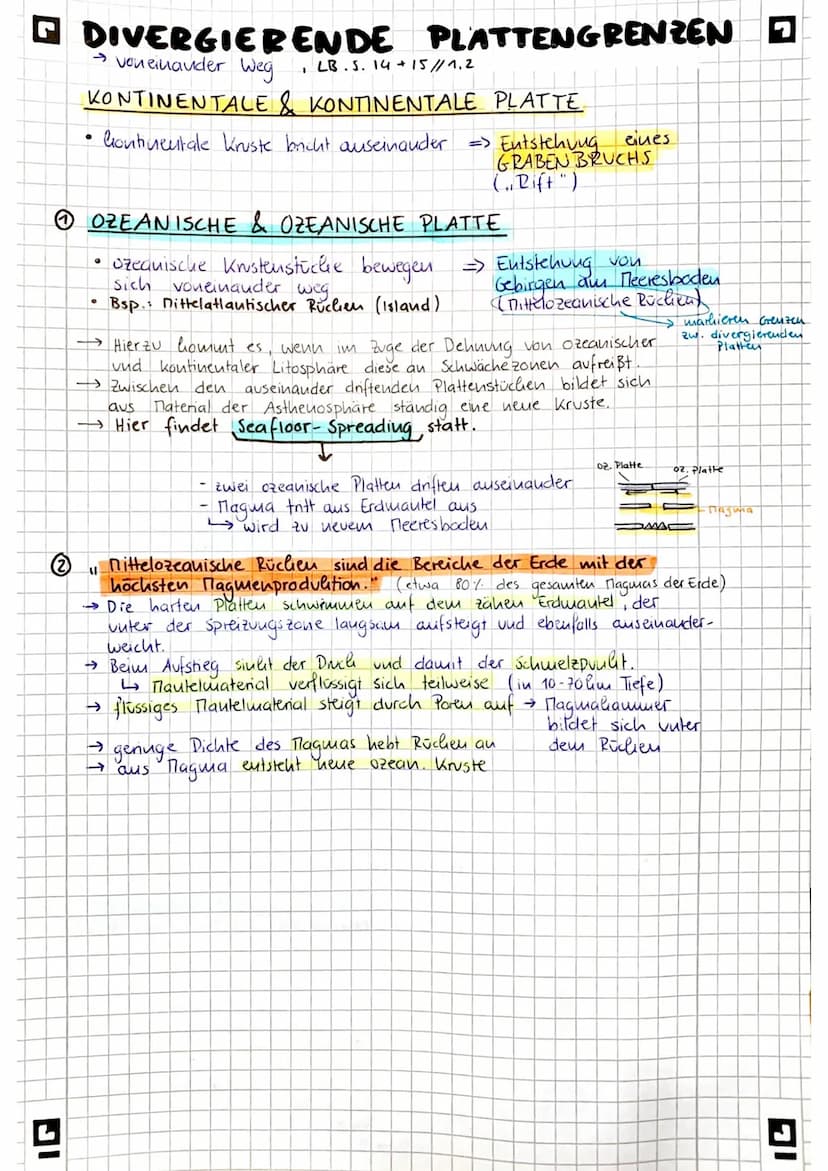 DIVERGIERENDE PLATTENGRENZEN
→ voneinander Weg , LB. S. 14 + 15 // 1.2
KONTINENTALE & KONTINENTALE PLATTE
• kontinentale Kruste bricht auseinander => Entstehung eines
GRABENBRUCHS
(„Rift")
① OZEANISCHE & OZEANISCHE PLATTE
• ozeanische Krustenstücke bewegen => Entstehung von
sich voneinander weg Gebirgen am Meeresboden
• Bsp.: Mittelatlantischer Rücken (Island) (Mittelozeanische Rücken)
→ markieren Grenzen
zw. divergierenden
Platten
→ Hierzu kommt es, wenn im Zuge der Dehnung von ozeanischer
und kontinentaler Litosphäre diese an Schwächezonen aufreißt.
→ Zwischen den auseinander driftenden Plattenstücken bildet sich
aus Material der Asthenosphäre ständig eine neue Kruste.
→ Hier findet Seafloor-Spreading statt.
- zwei ozeanische Platten driften auseinander
- Magma tritt aus Erdmantel aus
↳ wird zu neuem Meeresboden
oz. Platte oz. Platte
Magma
② „Mittelozeanische Rücken sind die Bereiche der Erde mit der
höchsten Magmenproduktion." (etwa 80% des gesamten Magmas der Erde)
→ Die harten Platten schwimmen auf dem zähen Erdmantel, der
unter der Spreizungszone langsam aufsteigt und ebenfalls auseinander-
weicht.
→ Beim Aufstieg sinkt der Druck und damit der Schmelzpunkt.
↳ Mantelmaterial verflüssigt sich teilweise (in 10-70km Tiefe)
→ flüssiges Mantelmaterial steigt durch Poren auf → Magmakammer
bildet sich unter
dem Rücken
→ geringe Dichte des Magmas hebt Rücken an
→ aus Magma entsteht neue ozean. Kruste